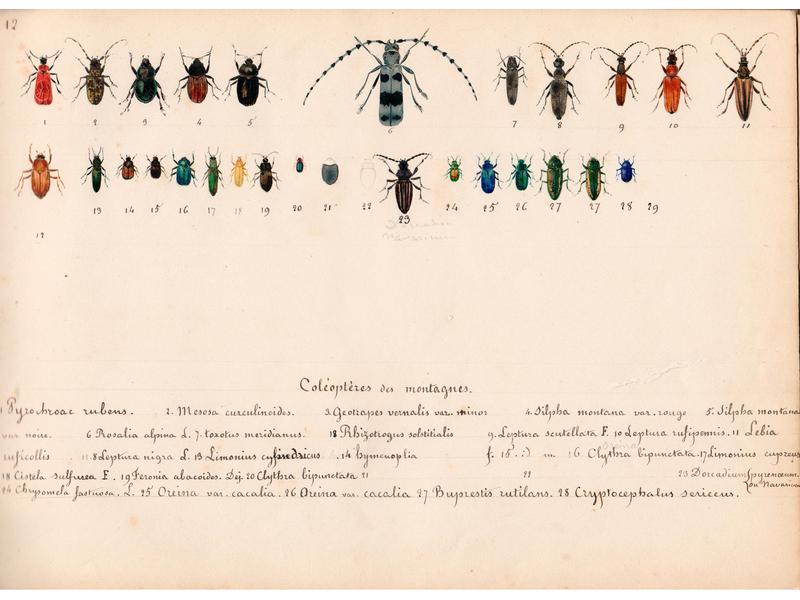 12
1 2 3 4 5 6 7 8 9 10 11
13 14 15 16 17 18 19 20 21 22 23 24 25 26 27 27 28 29
12
Navaricum
Coléoptères des montagnes.
1 Pyrochroae rubens. 2. Mesosa curculinoides. 3 Geotrapes vernalis var. minor 4. Silpha montana var. rouge 5. Silpha montana
var noire. 6 Rosalia alpina L. 7. toxotus meridianus. 18 Rhizotrogus solstitialis 9. Leptura scutellata F. 10 Leptura rufipennis. 11 Lebia
ruficollis 11.8 Leptura nigra L. 13 Limonius cylindricus. 14 hymenoplia f. 15 m. 16 Clythra bipunctata. 17 Limonius cupreus
18 Cistela sulfurea F. 19 Feronia abacoides. Dej. 20 Clythra bipunctata 21 22 23 Dorcadium pyrenoeum.
ou Navaricum
24 Chrysomela fastuosa. L. 25 Oreina var. cacalia. 26 Oreina var. cacalia 27 Buprestis rutilans. 28 Cryptocephalus sericeus.